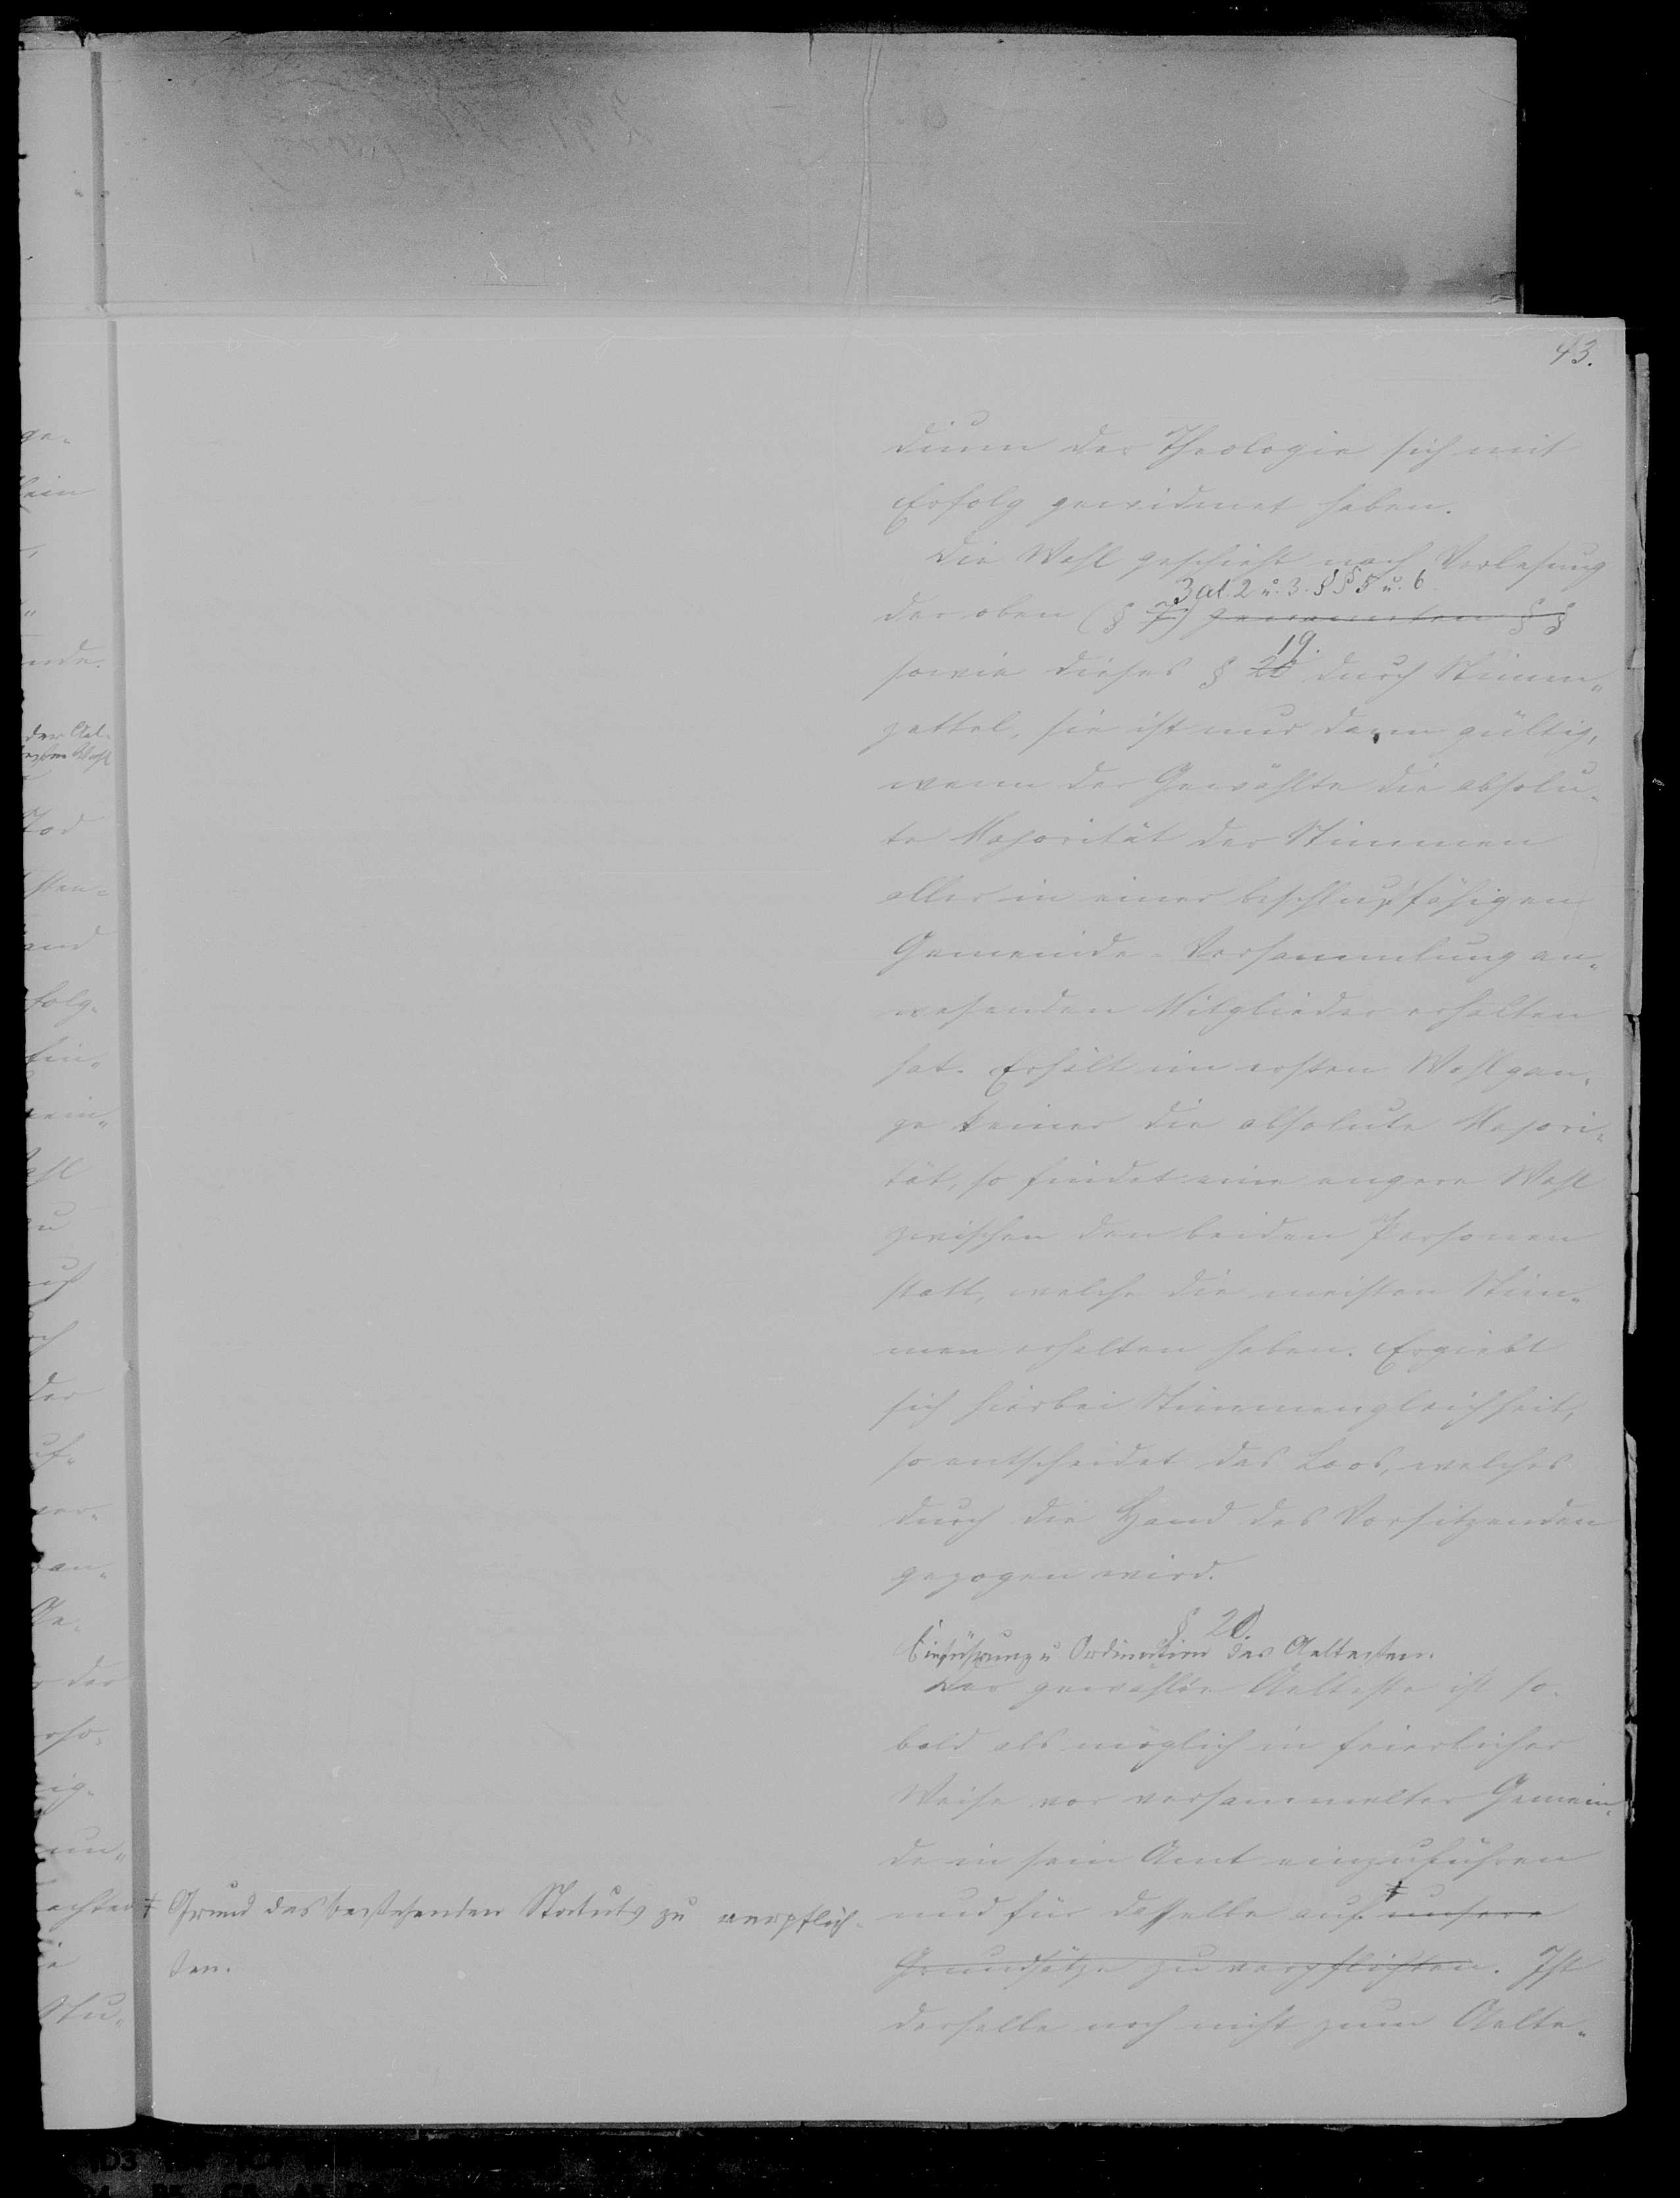 43.
dium der Theologie sich mit
Erfolg gewidmet haben.
Die Wahl geschieht nach Verlesung
3 al. 2 u. 3. §§ 5 u. 6.
der oben (§ 7.) genannten §§
19.
sowie dieses § 20 durch Stimm-
zettel, sie ist nur dann gültig,
wenn der Gewählte die absolu-
te Majorität der Stimmen
aller in einer beschlußfähigen
Gemeinde-Versammlung an-
wesenden Mitglieder erhalten
hat. Erhält im ersten Wahlgan-
ge keiner die absolute Majori-
tät, so findet eine engere Wahl
zwischen den beiden Personen
statt, welche die meisten Stim-
men erhalten haben. Ergiebt
sich hierbei Stimmengleichheit,
so entscheidet das Loos, welches
durch die Hand des Vorsitzenden
gezogen wird.
§ 20.
Einführung u. Ordination des Aeltesten.
Der gewählte Aelteste ist so-
bald als möglich in feierlicher
Weise vor versammelter Gemein-
de in sein Amt einzuführen
und für dasselbe auf ‡ unsere
Grundsätze zu verpflichten. Ist
derselbe noch nicht zum Aelte-
‡ Grund des bestehenden Statuts zu verpflich-
ten.